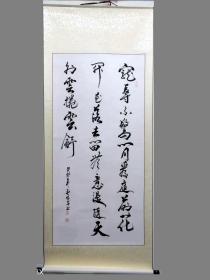 寵辱不驚閒看庭前花
開花落去留於意漫隨天
外雲捲雲舒